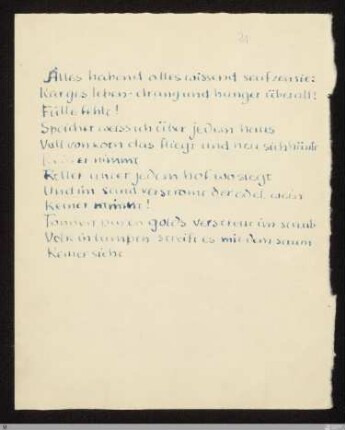 Alles habend alles wissend seufzen sie:
Karges leben · drang und hunger überall!
Fülle fehle!
Speicher weiss ich über jedem haus
Voll von korn das fliegt und neu sich häuft
Keiner nimmt
Keller unter jedem hof wo siegt
Und im sand verströmt der edelwein
Keiner trinkt!
Tonnen puren golds verstreut im staub
Volk in lumpen streift es mit dem saum
Keiner sieht